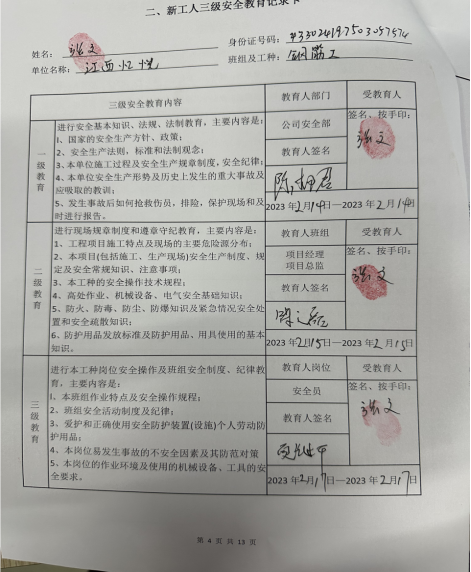 二、新工人三级安全教育记录卡
姓名：张文 身份证号码：
单位名称：江西 班组及工种：钢筋工
三级安全教育内容 教育人部门 受教育人
一级教育
进行安全基本知识、法规、法制教育，主要内容是：
1、国家的安全生产方针、政策；
2、安全生产法则，标准和法制观念；
3、本单位施工过程及安全生产规章制度，安全纪律；
4、本单位安全生产形势及历史上发生的重大事故及
应吸取的教训；
5、发生事故后如何抢救伤员，排险，保护现场和及
时进行报告。
公司安全部 签名、按手印：
教育人签名 张文
2023年2月14日—2023年2月14日
二级教育
进行现场规章制度和遵章守纪教育，主要内容是：
1、工程项目施工特点及现场的主要危险源分布；
2、本项目(包括施工、生产现场)安全生产制度、规
定及安全常规知识、注意事项；
3、本工种的安全操作技术规程；
4、高处作业、机械设备、电气安全基础知识；
5、防火、防毒、防尘、防爆知识及紧急情况安全处
置和安全疏散知识；
6、防护用品发放标准及防护用品、用具使用的基本
知识。
教育人班组 受教育人
项目经理 签名、按手印：
项目总监
教育人签名 张文
2023年2月15日—2023年2月15日
三级教育
进行本工种岗位安全操作及班组安全制度、纪律教
育，主要内容是：
1、本班组作业特点及安全操作规程；
2、班组安全活动制度及纪律；
3、爱护和正确使用安全防护装置(设施)个人劳动防
护用品；
4、本岗位易发生事故的不安全因素及其防范对策
5、本岗位的作业环境及使用的机械设备、工具的安
全要求。
教育人岗位 受教育人
安全员 签名、按手印：
教育人签名 张文
2023年2月17日—2023年2月17日
第 4 页 共 13 页